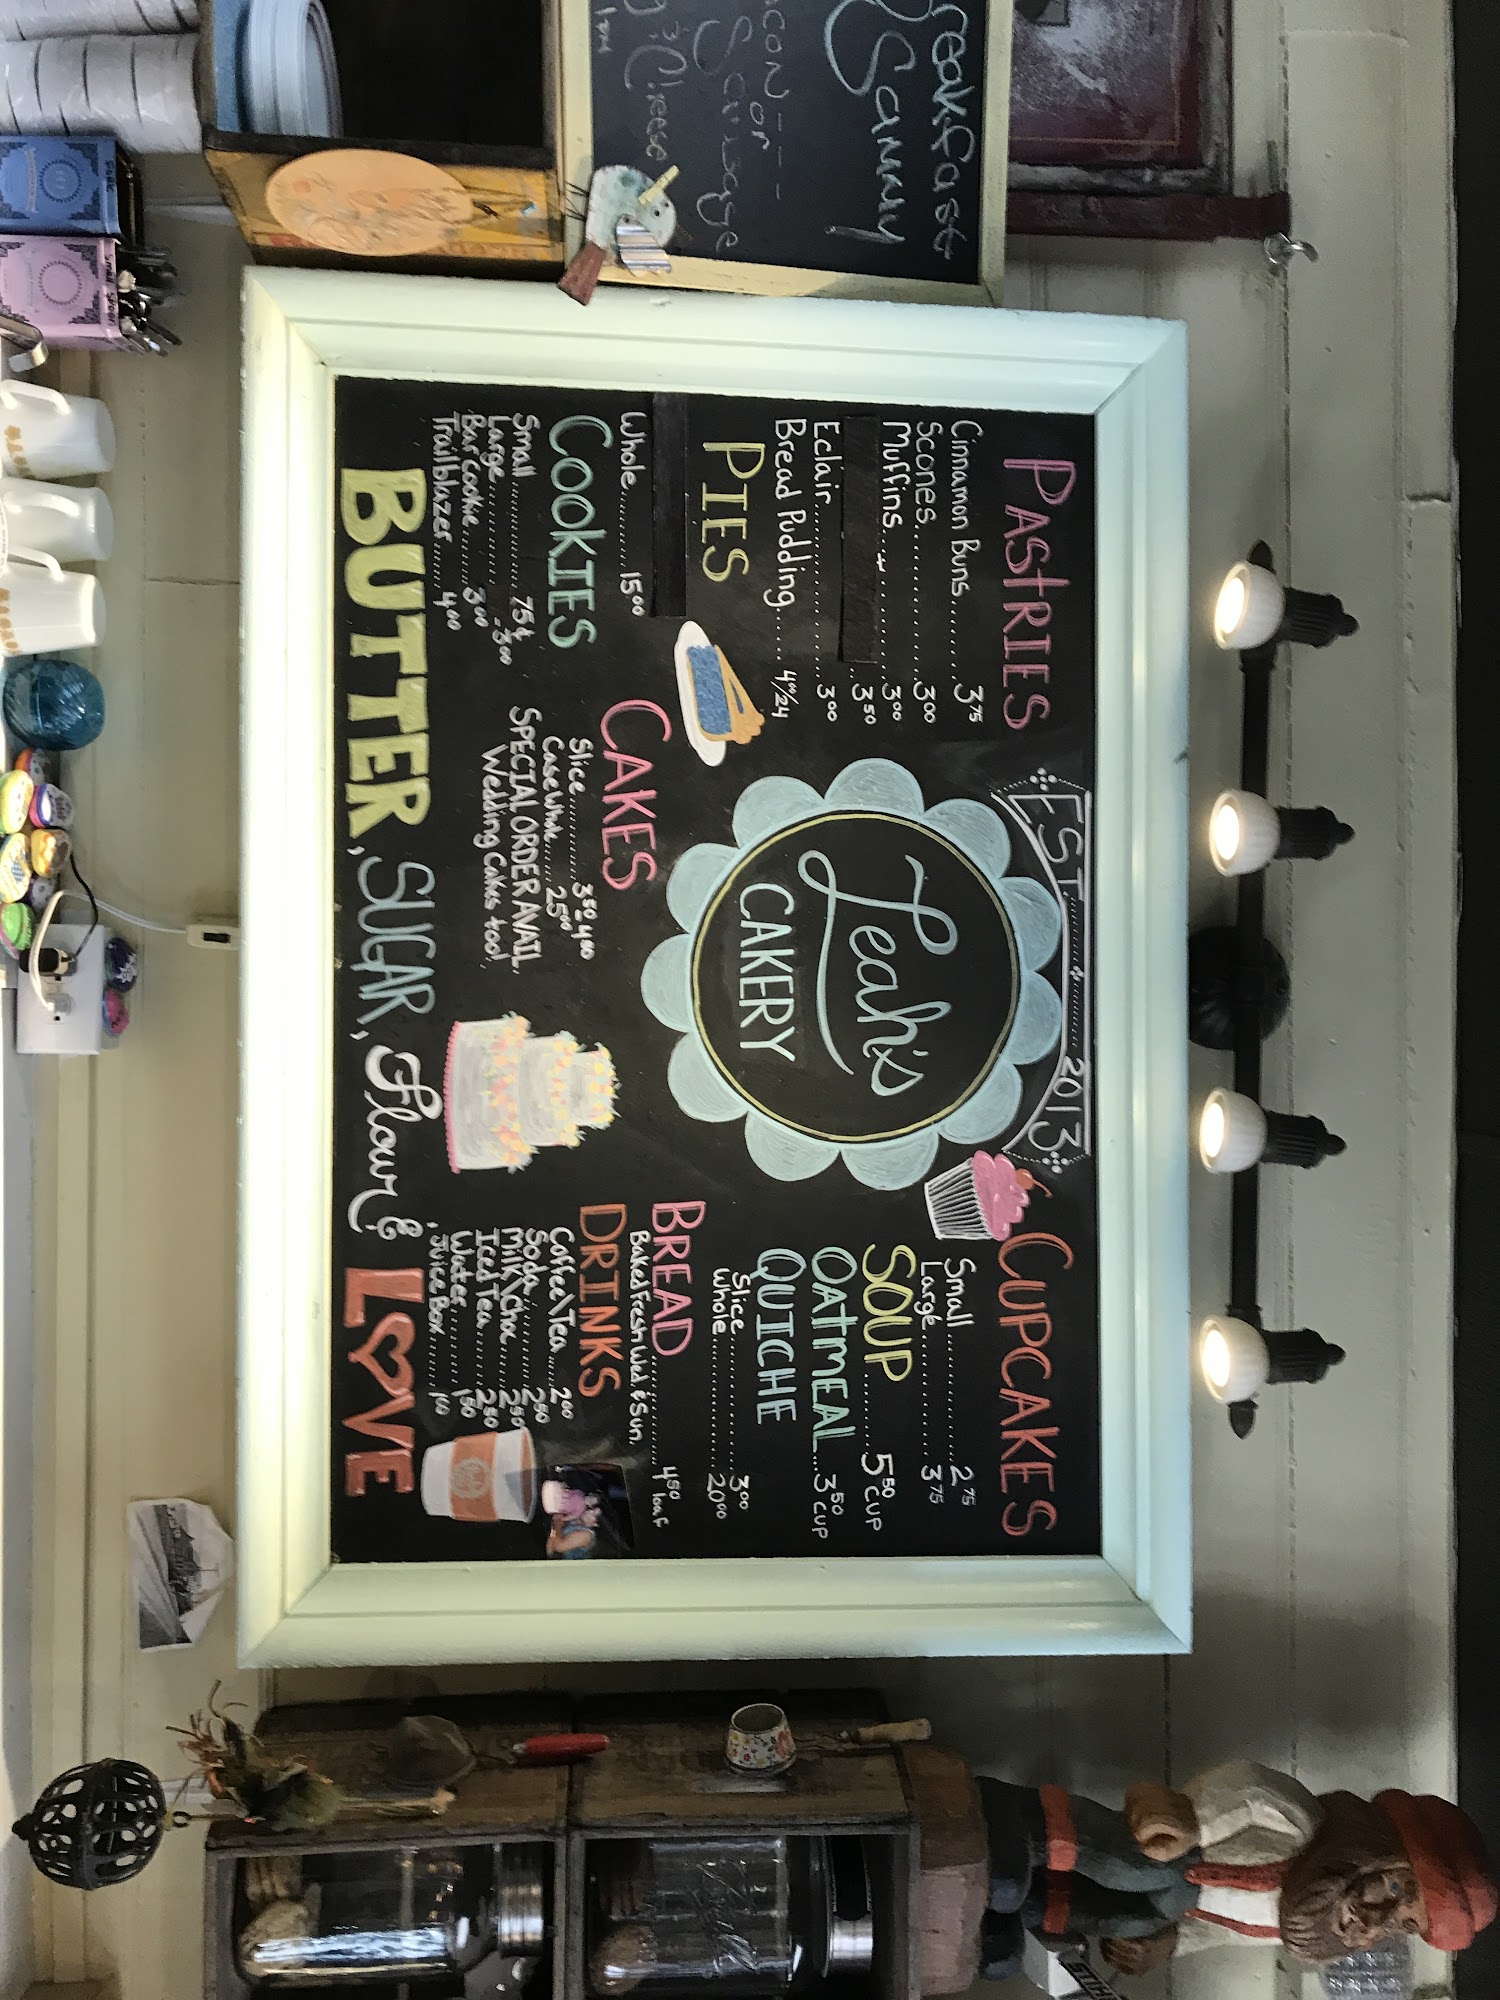 Breakfast
Sammy
Bacon or
Sausage
Egg & Cheese
EST. 2013
Leah's
CAKERY
PASTRIES
Cinnamon Buns........ 3.75
Scones............ 3.00
Muffins............ 3.00
3.50
Eclair............ 3.00
Bread Pudding....... 4.00/24
PIES
Whole......... 15.00
COOKIES
Small......... 75¢
Large......... 3.00
Bar Cookie........ 3.00
Trailblazer....... 4.00
CAKES
Slice............ 3.50-4.00
Case Whole........ 25.00
SPECIAL ORDER AVAIL.
Wedding Cakes too!
CUPCAKES
Small............ 2.75
Large............ 3.75
SOUP......... 5.50 CUP
OATMEAL...3.50 CUP
QUICHE
Slice............ 3.00
Whole............ 20.00
BREAD............ 4.50 loaf
Baked Fresh Wed. & Sun.
DRINKS
Coffee\Tea...... 2.00
Soda......... 2.50
Milk\Choc...... 2.50
Iced Tea...... 2.50
Water......... 1.50
Juice Box...... 1.00
BUTTER, SUGAR, Flour & LOVE